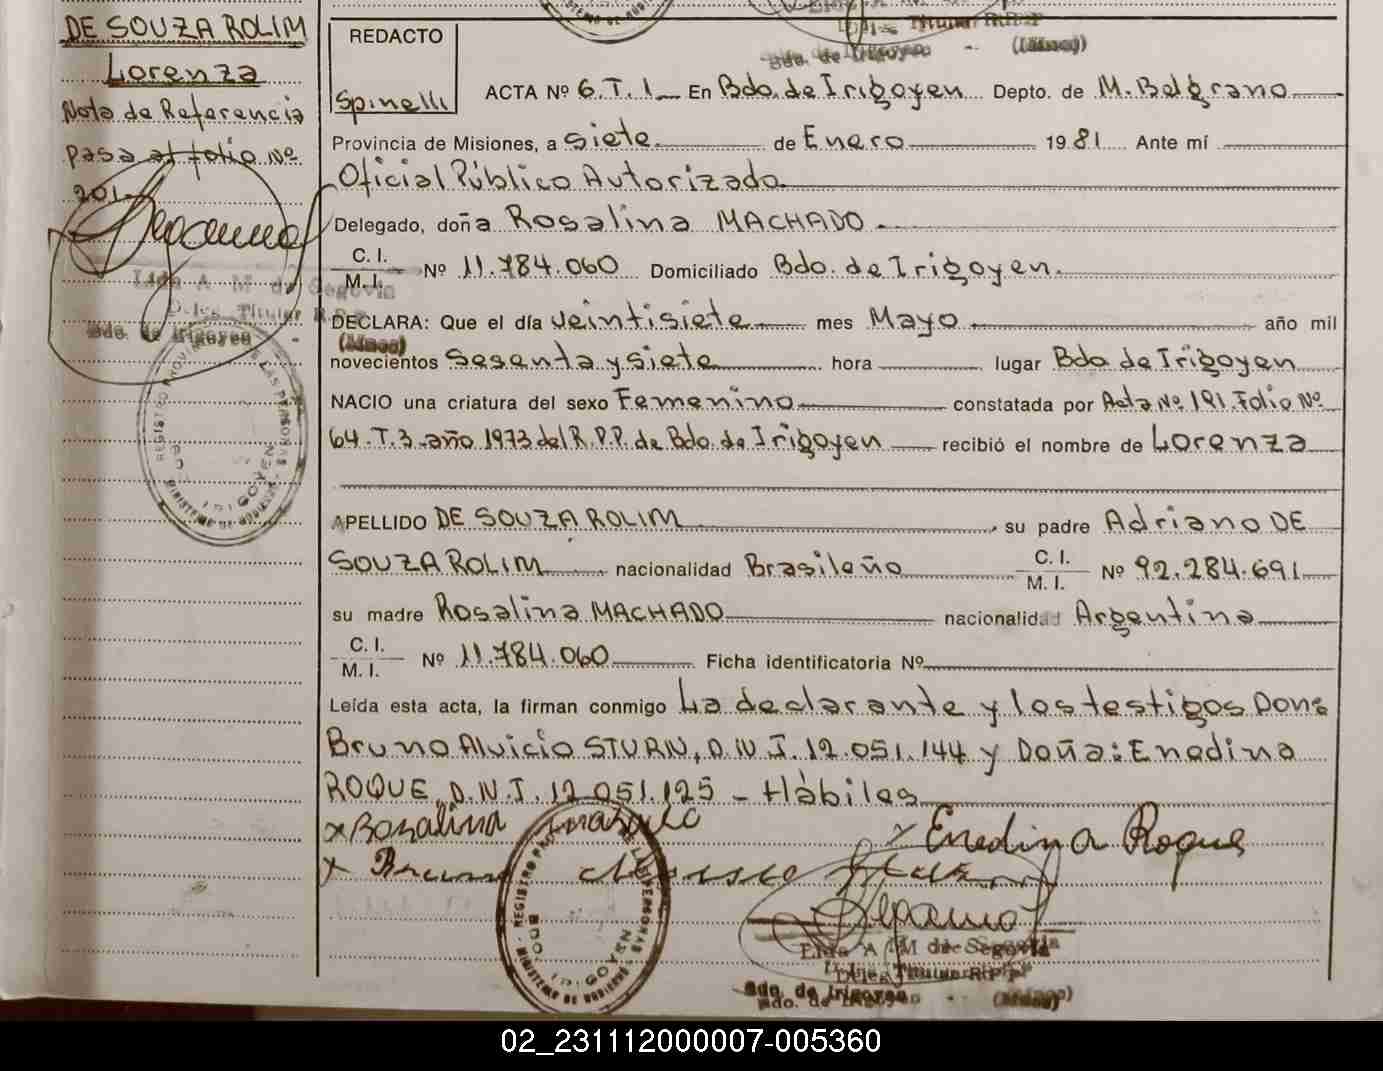 DE SOUZA ROLIM
Lorenza
Nota de Referencia
Pasa al folio Nº
201-
Elda A M de Segovia
Deleg Titular R.P.P
Bdo. de Irigoyen - (Mnes)
REGISTRO PROVINCIAL DE LAS PERSONAS - MINISTERIO DE GOBIERNO -
BDO. IRIGOYEN
Titular R.P.P
Bdo. de Irigoyen - (Mnes)
REDACTO
Spinelli
ACTA Nº 6.T.1 En Bdo. de Irigoyen Depto. de M. Belgrano
Provincia de Misiones, a siete de Enero 1981 Ante mí
Oficial Público Autorizado
Delegado, doña Rosalina MACHADO
C. I.
M. I. Nº 11.784.060 Domiciliado Bdo. de Irigoyen.
DECLARA: Que el día veintisiete mes Mayo año mil
novecientos Sesenta y siete hora lugar Bdo de Irigoyen
NACIO una criatura del sexo Femenino constatada por Acta Nº 191. Folio Nº
64-T.3-año 1973 del R.P.P. de Bdo. de Irigoyen recibió el nombre de Lorenza
APELLIDO DE SOUZA ROLIM, su padre Adriano DE
SOUZA ROLIM nacionalidad Brasileño C. I.
M. I. Nº 92.284.691
su madre Rosalina MACHADO nacionalidad Argentina
C. I.
M. I. Nº 11.784.060 Ficha identificatoria Nº
Leída esta acta, la firman conmigo La declarante y los testigos Don:
Bruno Alvicio STURN, D.N.I. 12.051.144 y Doña: Enedina
ROQUE, D.N.I. 12.051.125 - Hábiles
x Rosalina Machado x Enedina Roque
x Bruno
REGISTRO PROVINCIAL DE LAS PERSONAS - MINISTERIO DE GOBIERNO -
BDO. IRIGOYEN
Elda A M de Segovia
Deleg Titular R.P.P
Bdo. de Irigoyen - (Mnes)
02_231112000007-005360